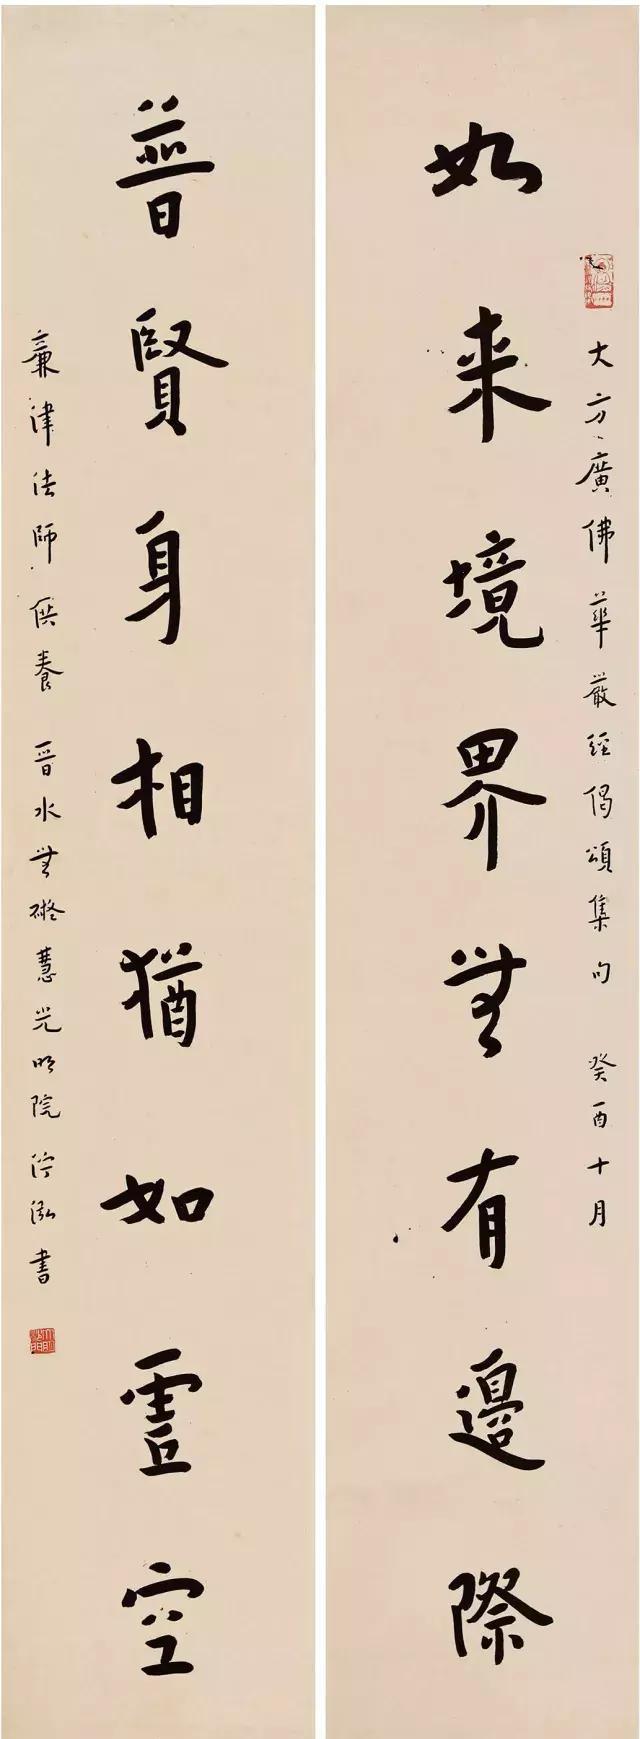 大方廣佛華嚴經偈頌集句 癸酉十月
如来境界無有邊際
普賢身相猶如虛空
廣津法師供養 晉水無礙慧光明院沙門書